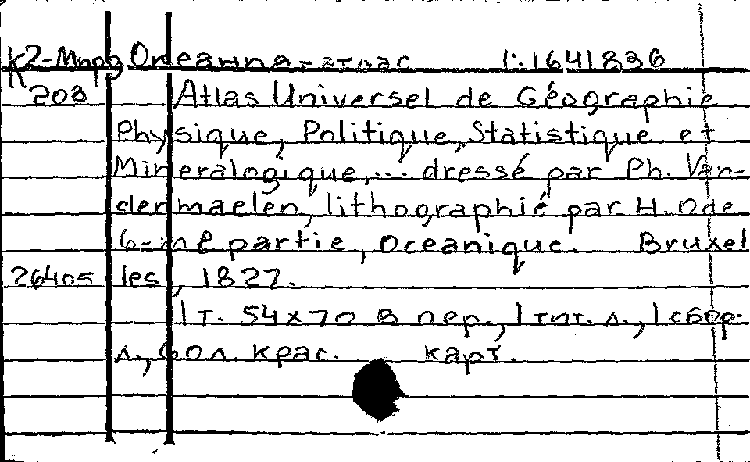 К2-Мпрg Океания-атлас 1:1641836
208 Atlas Universel de Géographie
Physique, Politique, Statistique et
Minéralogique,... dressé par Ph. Van-
dermaelen, lithographié par H. Ode
6-me partie, Océanique. Bruxel
26405 les, 1827.
1 т. 54x70 в пер., 1 тит. л., 1 сбор.
л., 60 л. крас. карт.